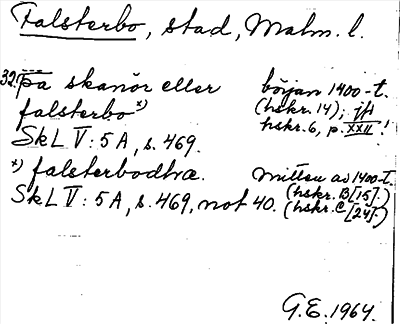 Falsterbo, stad, Malm. l.
32. Pa skanör eller början 1400-t.
falsterbo x) (hskr. 14); jfr
hskr. 6, p. XXII!
SkL V: 5 A, s. 469.
x) falsterbodhræ. mitten av 1400-t.
(hskr. B [15].)
SkL V: 5 A, s. 469, not 40. (hskr. C [24].)
G.E. 1964.